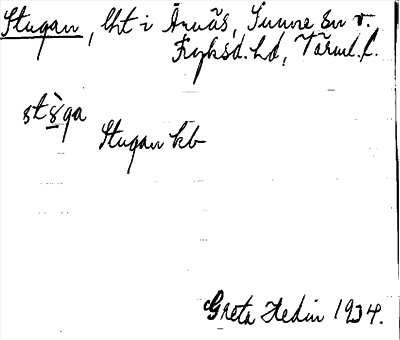 Stugan, lht i Ånnäs, Sunne sn v.
Fryksd. hd, Värml. l.
stš̀ga
Stugan kb
Greta Hedin 1934.